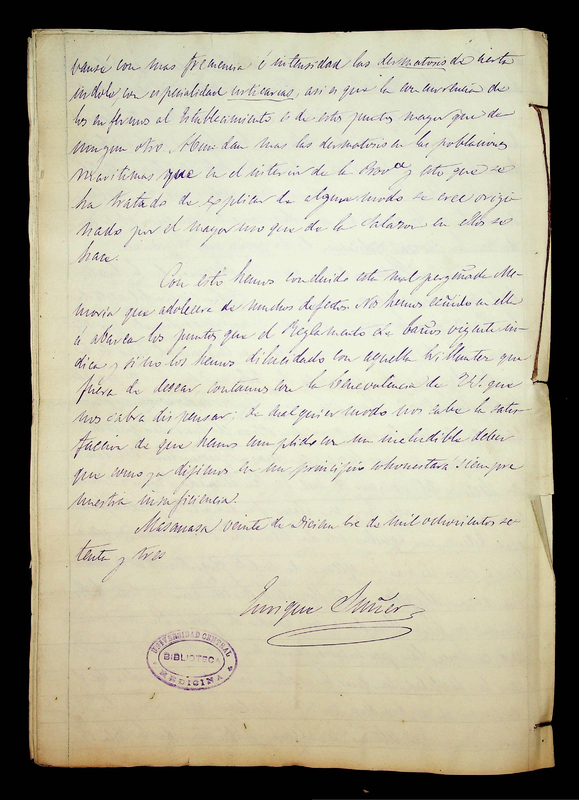 vanse con mas frecuencia é intensidad las dermatosis de cierta
indole con especialidad urticarias, asi es que la concurrencia de
los enfermos al Establecimiento es de estos puntos mayor que de
ningun otro. Abundan mas las dermatosis en las poblaciones
maritimas que en el interior de la Prov.ª y esto que se
ha tratado de explicar de algun modo se cree origi
nado por el mayor uso que de la salazon en ellos se
hace.
Con esto hemos concluido esta mal pergeñada Me-
moria que adolecera de muchos defectos. Nos hemos ceñido en ella
á abarcar los puntos que el Reglamento de baños vigente in-
dica, y si no los hemos dilucidado con aquella brillantez que
fuera de desear, contamos con la benevolencia de V.I. que
nos sabra dispensar: de cualquier modo nos cabe la satis-
faccion de que hemos cumplido con un ineludible deber
que como ya dijimos en un principio cohonestará siempre
nuestra insuficiencia.
Masanasa veinte de Diciembre de mil ochocientos se-
tenta y tres
Enrique Suñer
UNIVERSIDAD CENTRAL
BIBLIOTECA
MEDICINA